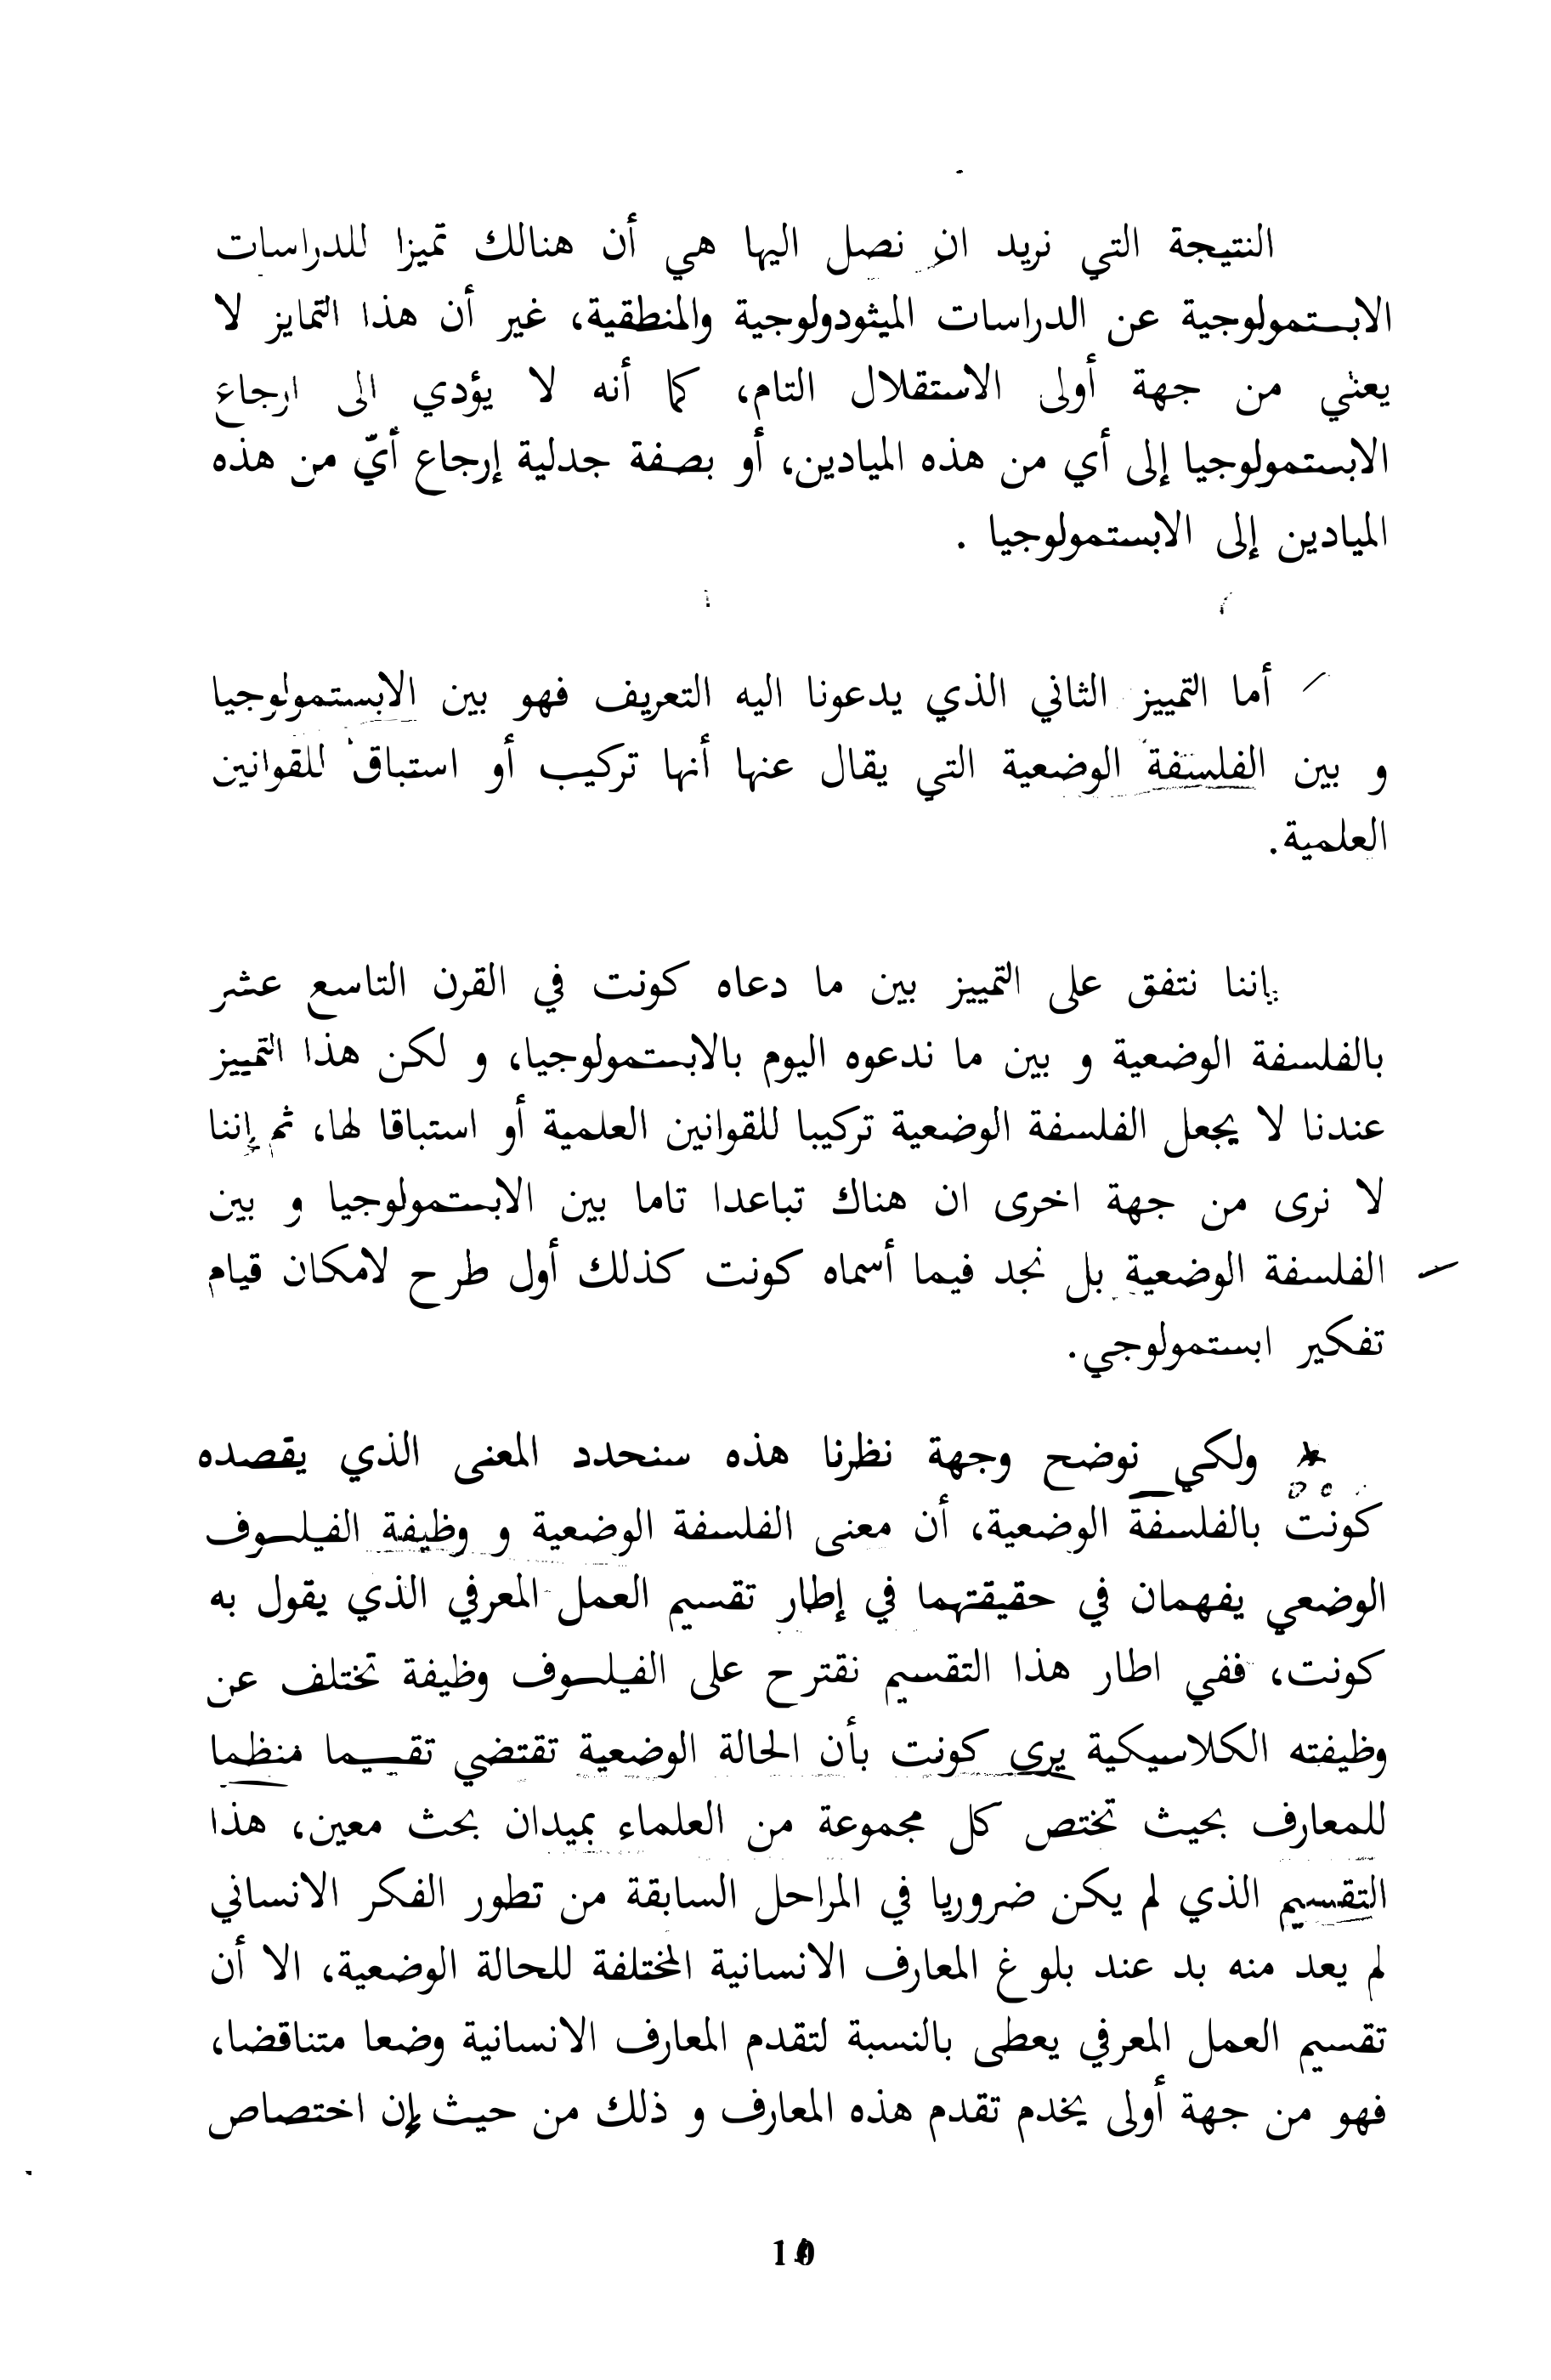 النتيجة التي نريد ان نصل اليها هي أن هنالك تميزا للدراسات
الابستمولوجية عن الدراسات الميثودولوجية والمنطقية، غير أن هذا التمايز لا
يعني من جهة أولى الاستقلال التام، كما أنه لا يؤدي الى ارجاع
الابستمولوجيا إلى أي من هذه الميادين، أو بصفة جدلية إرجاع أيّ من هذه
الميادين إلى الابستمولوجيا .
أما التمييز الثاني الذي يدعونا اليه التعريف فهو بين الابستمولوجيا
و بين الفلسفة الوضعية التي يقال عنها أنها تركيب أو استباق للقوانين
العلمية.
إننا نتفق على التمييز بين ما دعاه كونت في القرن التاسع عشر
بالفلسفة الوضعية و بين ما ندعوه اليوم بالابستمولوجيا، و لكن هذا التمييز
عندنا لا يجعل الفلسفة الوضعية تركيبا للقوانين العلمية أو استباقا لها، ثم إننا
لا نرى من جهة اخرى ان هناك تباعدا تاما بين الابستمولوجيا و بين
الفلسفة الوضعية بل نجد فيما أسماه كونت كذلك أول طرح لامكان قيام
تفكير ابستمولوجي.
* ولكي نوضح وجهة نظرنا هذه سنحدد المعنى الذي يقصده
كونت بالفلسفة الوضعية، أن معنى الفلسفة الوضعية و وظيفة الفيلسوف
الوضعي يفهمان في حقيقتهما في إطار تقسيم العمل المعرفي الذي يقول به
كونت، ففي اطار هذا التقسيم نقترح على الفيلسوف وظيفة تختلف عن
وظيفته الكلاسيكية يرى كونت بأن الحالة الوضعية تقتضي تقسيما منظما
للمعارف بحيث تختص كل مجموعة من العلماء بميدان بحث معين، هذا
التقسيم الذي لم يكن ضروريا في المراحل السابقة من تطور الفكر الانساني
لم يعد منه بد عند بلوغ المعارف الانسانية المختلفة للحالة الوضعية، الا أن
تقسيم العمل المعرفي يعطى بالنسبة لتقدم المعارف الانسانية وضعا متناقضا،
فهو من جهة أولى يخدم تقدم هذه المعارف و ذلك من حيث إن اختصاص
10